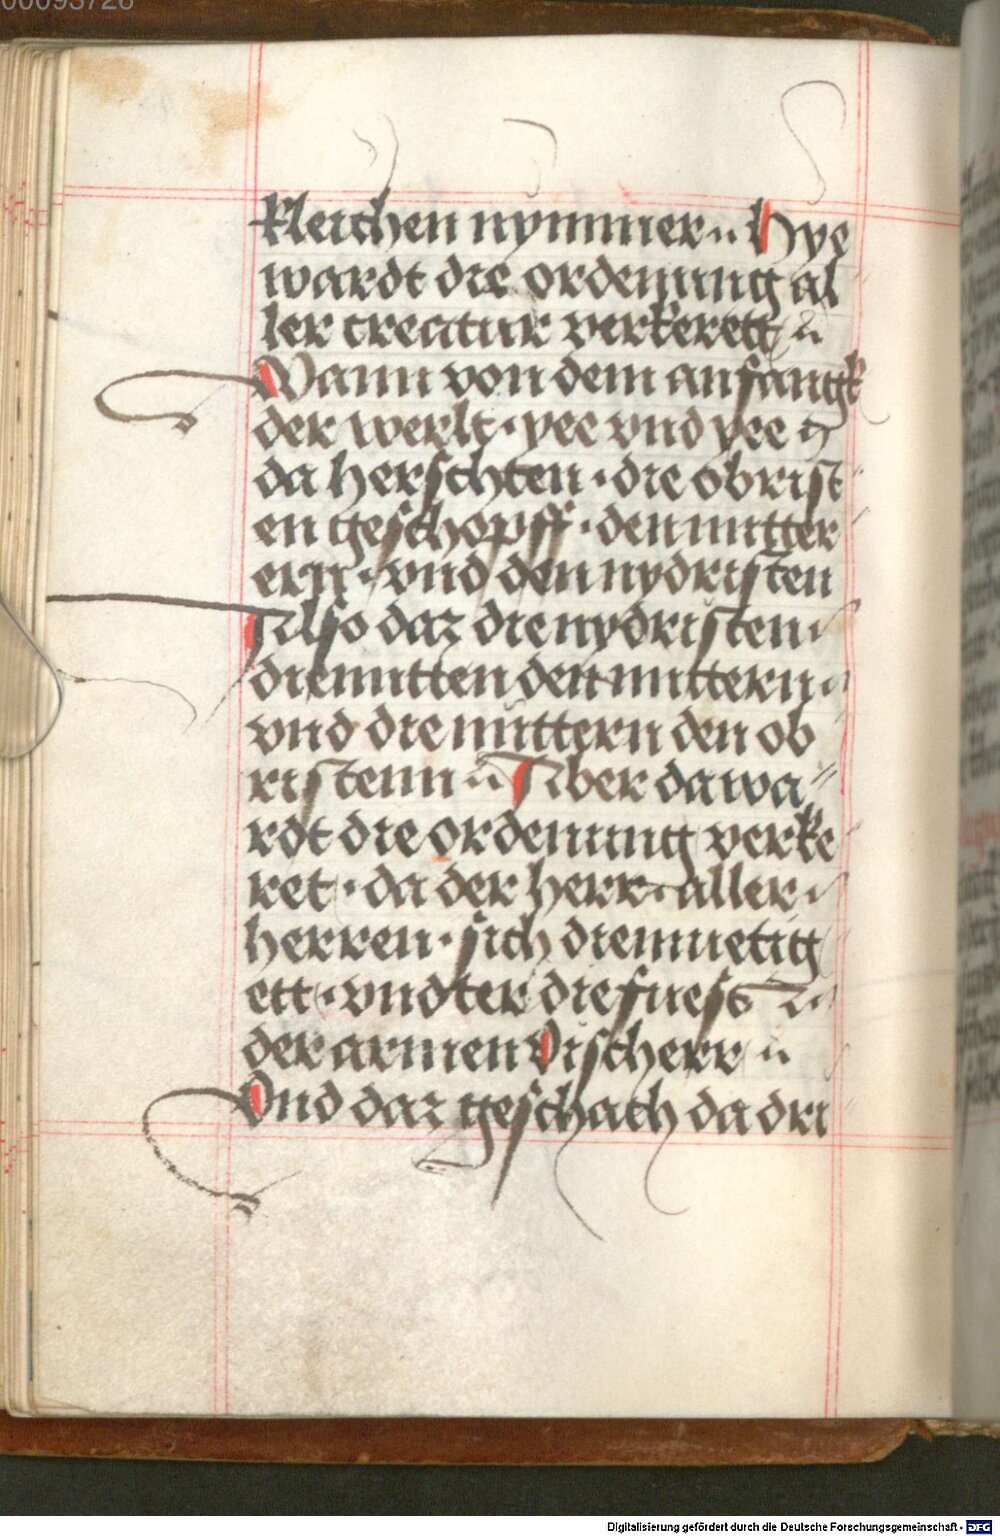 00093726
kleichen nymmer.. Hye
wardt die ordenung al
ler creatur verkerett
Wann von dem anfangk
der werlt · yee vnd yee
da herschten · die obrist
en geschopff · den mitter
ern · vnd den nydristen
Also daz die nydristen
die mitten den mittern
vnd die mittern den ob
ristenn Aber da wa
rdt die ordenung verke
ret · da der herr aller
herren · sich diemuetig
ett · vndter die fuess
der armen Vischerr
Vnd daz geschach da dri
Digitalisierung gefördert durch die Deutsche Forschungsgemeinschaft - DFG